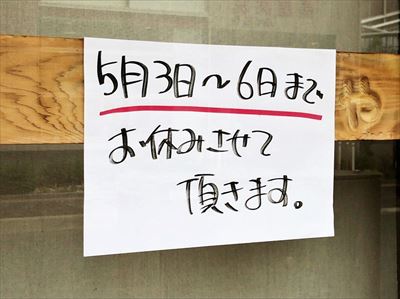 5月3日～6日まで、
お休みさせて
頂きます。